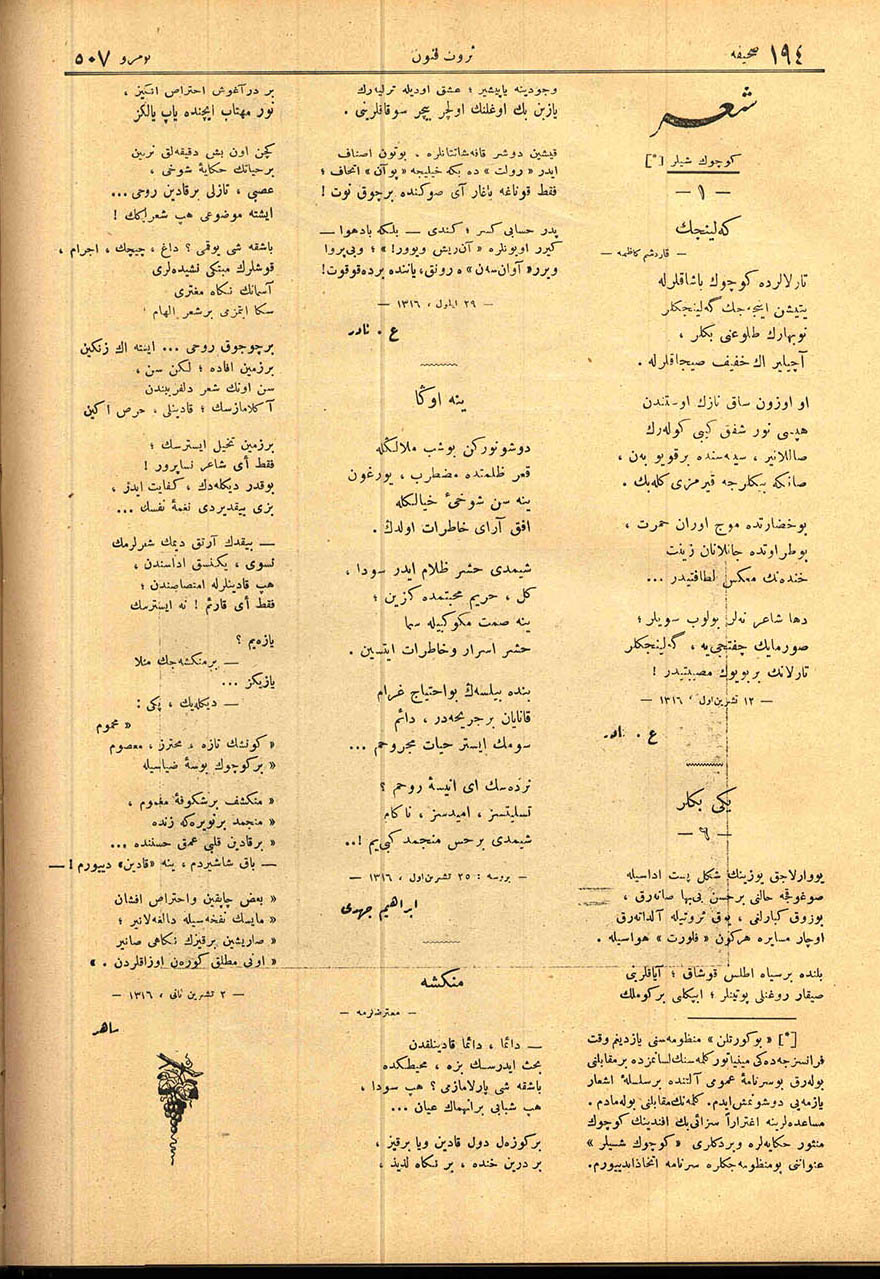 صحیفه ١٩٤
ثروت فنون
نومرو ٥٠٧
شعر
كوچوك شیلر [*]
— ١ —
كه‌لینجك
— قاردشم كاظمه —
تارلالرده كوچوك باشاقلرله
یتیشن اینجه‌جك گه‌لینجكلر
نوبهارك طلوعنی بكلر ،
آچیلیر اك خفیف صیجاقلرله .
او اوزون ساق نازك اوستندن
هپسی نور شفق كبی كوله‌رك
صاللانیر ، سینه‌سنده برقویو به‌ن ،
صانكه بیكلرجه قیرمزی كله‌بك .
بوخضارتده موج اوران حمرت ،
بوطراوتده جانلانان زینت
خنده‌نك معكس لطافتیدر ...
دها شاعر نه‌لر بولوب سویلر ؛
صورمایك چفتجی‌یه ، گه‌لینجكلر
تارلانك بربویوك مصیبتیدر !
— ١٢ تشرین‌اول ، ١٣١٦ —
ع . نادر
یكی بكلر
— ٦ —
یووارلاجق یوزینك شكل پست اداسیله
صوغوقجه حالنی برحسن بی‌بها صانه‌رق ،
بوزوق كبارلنی ، یوق ثروتیله آلدانه‌رق
اوچار مسایره هركون « فلورت » هواسیله .
بلنده برسیاه اطلس قوشاق ؛ آیاقلرینی
صیقار روغنلی پوتینلر ؛ ایپكلی بركوملك
[*] « بوكورتلن » منظومه‌سنی یازدیغم وقت
فرانسزجه‌ده‌كی مینیاتور كله‌سنك لسانمزده برمقابلنی
بوله‌رق بوسرنامۀ عمومی آلتنده برسلسلۀ اشعار
یازمه‌یی دوشونمش‌ایدم. كله‌نك‌مقابلنی بوله‌مادم .
مساعده‌لرینه اغتراراً سزائی‌بك افندینك كوچوك
منثور حكایه‌لره ویردكلری « كوچوك شیلر »
عنواننی بومنظومه‌جكلره سرنامه اتخاذایدییورم.
وجودینه یاپیشیر ؛ عشق اودیله ترلیه‌رك
یازین بك اوغلنك اولچر بیچر سوقاقلرینی .
قیشین دوشر قافه‌شانتانلره . بوتون اصناف
ایدر « رولت » ده بكه خیلیجه « پوآن » اتحاف ؛
فقط قوناغه یاغار آی صوكنده برچوق نوت !
پدر حسابی كسر ؛ كندی — بلكه بادهوا —
كیرر اویونلره « آن‌ریش ویوور! » ؛ وبی‌پروا
ویرر« آوان‌سه‌ن» ه رونق، یاننده برده‌قوقوت!
— ٢٩ ایلول ، ١٣١٦ —
ع . نادر
ینه اوكا
دوشونوركن بوشب ملالكله
قعر ظلمتده مضطرب ، یورغون
ینه سن شوخیٔ خیالكله
افق آرای خاطرات اولدك .
شیمدی حشر ظلام ایدر سودا ،
كل ، حریم محبتمده كزین ؛
ینه صمت مكوكبیله سما
حشر اسرار وخاطرات ایتسین .
بنده بیلسه‌ك بواحتیاج غرام
قانایان برجریحه‌در ، دائم
سومك ایستر حیات مجروحم ...
نرده‌سك ای انیسۀ روحم ؟
تسلیتسز ، امیدسز ، ناكام
شیمدی برحس منجمد كبی‌یم !..
— بروسه : ٢٥ تشرین‌اول ، ١٣١٦ —
ابراهیم جهدی
منكشه
— معترضلرمه —
— دائما ، دائما قادینلقدن
بحث ایدرسك بزه ، محیطكده
باشقه شی پارلامازمی ؟ هپ سودا ،
هپ شبابی برانهماك عیان ...
بركوزه‌ل دول قادین ویا برقیز ،
بر درین خنده ، بر نگاه لذیذ ،
بر درآغوش احتراص انكیز ،
نور مهتاب ایچنده یاپ یالكز
كچن اون بش دقیقه‌لق
برحیاتك حكایۀ شوخی ،
عصبی ، نازلی برقادین روحی ...
ایشته موضوعی هپ شعرلركك !
باشقه شی یوقمی ؟ داغ ، چیچك ، اجرام ،
قوشلرك مبتكی نشیده‌لری
آسمانك نكاه مغبری
سكا ایتمزمی برشعر الهام
برچوجوق روحی ... ایشته اك زنكین
برزمین افاده ؛ لكن سن ،
سن اونك شعر دلفریبندن
آكلامازسك ؛ قادینلی ، حرص آكین
برزمین تخیل ایسترسك ؛
فقط أی شاعر نساپرور !
بوقدر دیكله‌دك ، كفایت ایدر ،
بزی بیقدیردی نغمۀ نفسك ...
— بیقدك آرتق دیمك شعرلرمك
نسوی ، یكنسق اداسندن ،
هپ قادینلرله امتصاصندن ؛
فقط أی قارئم ! نه ایسترسك
یازه‌یم ؟
— برمنكشه‌جك مثلا
یازیكز ...
— دیكله‌یك ، پكی :
« محموم
« كونشك تازه ، محترز ، معصوم
« بركوچوك بوسۀ ضیاسیله
« منكشف برشكوفۀ مغموم ،
« منجمد برنوبره‌كه زنده
« برقادین قلبی عمق حسننده ...
— باق شاشیردم ، ینه «قادین» دییورم ! —
« بعض چاپقین واحتراص افشان
« مایسك نفخه‌سیله دالغه‌لانیر ؛
« صاریشین برقیزك نكاهی صانیر
« اونی مطلق كوره‌ن اوزاقلردن . »
— ٢ تشرین ثانی ، ١٣١٦ —
ساهر